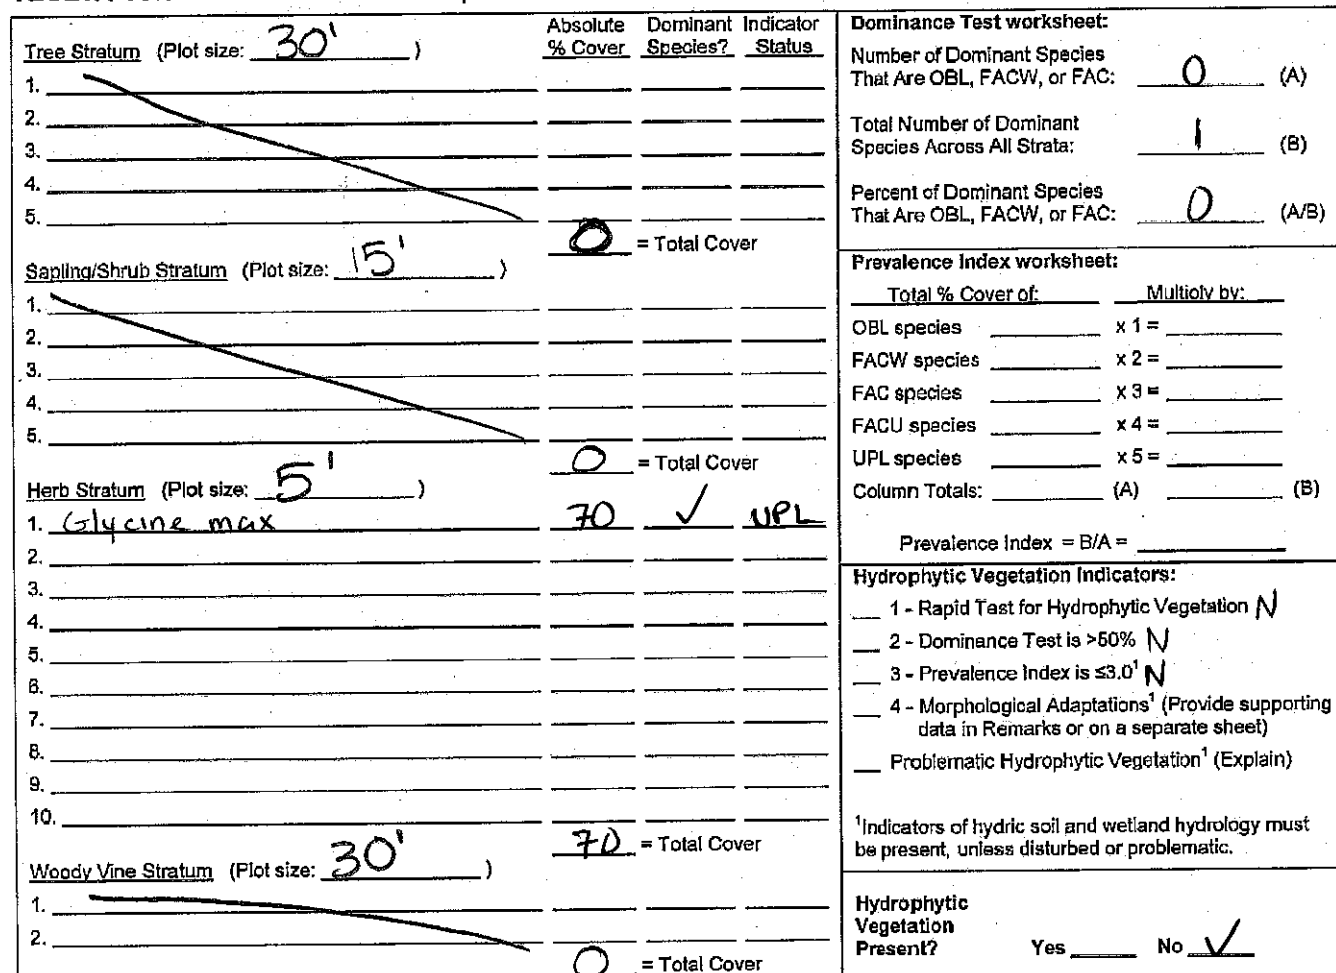 Absolute Dominant Indicator
Tree Stratum (Plot size: 30' ) % Cover Species? Status
1.
2.
3.
4.
5.
0 = Total Cover
Sapling/Shrub Stratum (Plot size: 15' )
1.
2.
3.
4.
5.
0 = Total Cover
Herb Stratum (Plot size: 5' )
1. Glycine max 70 ✓ UPL
2.
3.
4.
5.
6.
7.
8.
9.
10.
70 = Total Cover
Woody Vine Stratum (Plot size: 30' )
1.
2.
0 = Total Cover
Dominance Test worksheet:
Number of Dominant Species
That Are OBL, FACW, or FAC: 0 (A)
Total Number of Dominant
Species Across All Strata: 1 (B)
Percent of Dominant Species
That Are OBL, FACW, or FAC: 0 (A/B)
Prevalence Index worksheet:
Total % Cover of: Multiply by:
OBL species x 1 =
FACW species x 2 =
FAC species x 3 =
FACU species x 4 =
UPL species x 5 =
Column Totals: (A) (B)
Prevalence Index = B/A =
Hydrophytic Vegetation Indicators:
1 - Rapid Test for Hydrophytic Vegetation N
2 - Dominance Test is >50% N
3 - Prevalence Index is ≤3.0¹ N
4 - Morphological Adaptations¹ (Provide supporting
data in Remarks or on a separate sheet)
Problematic Hydrophytic Vegetation¹ (Explain)
¹Indicators of hydric soil and wetland hydrology must
be present, unless disturbed or problematic.
Hydrophytic
Vegetation
Present? Yes No ✓